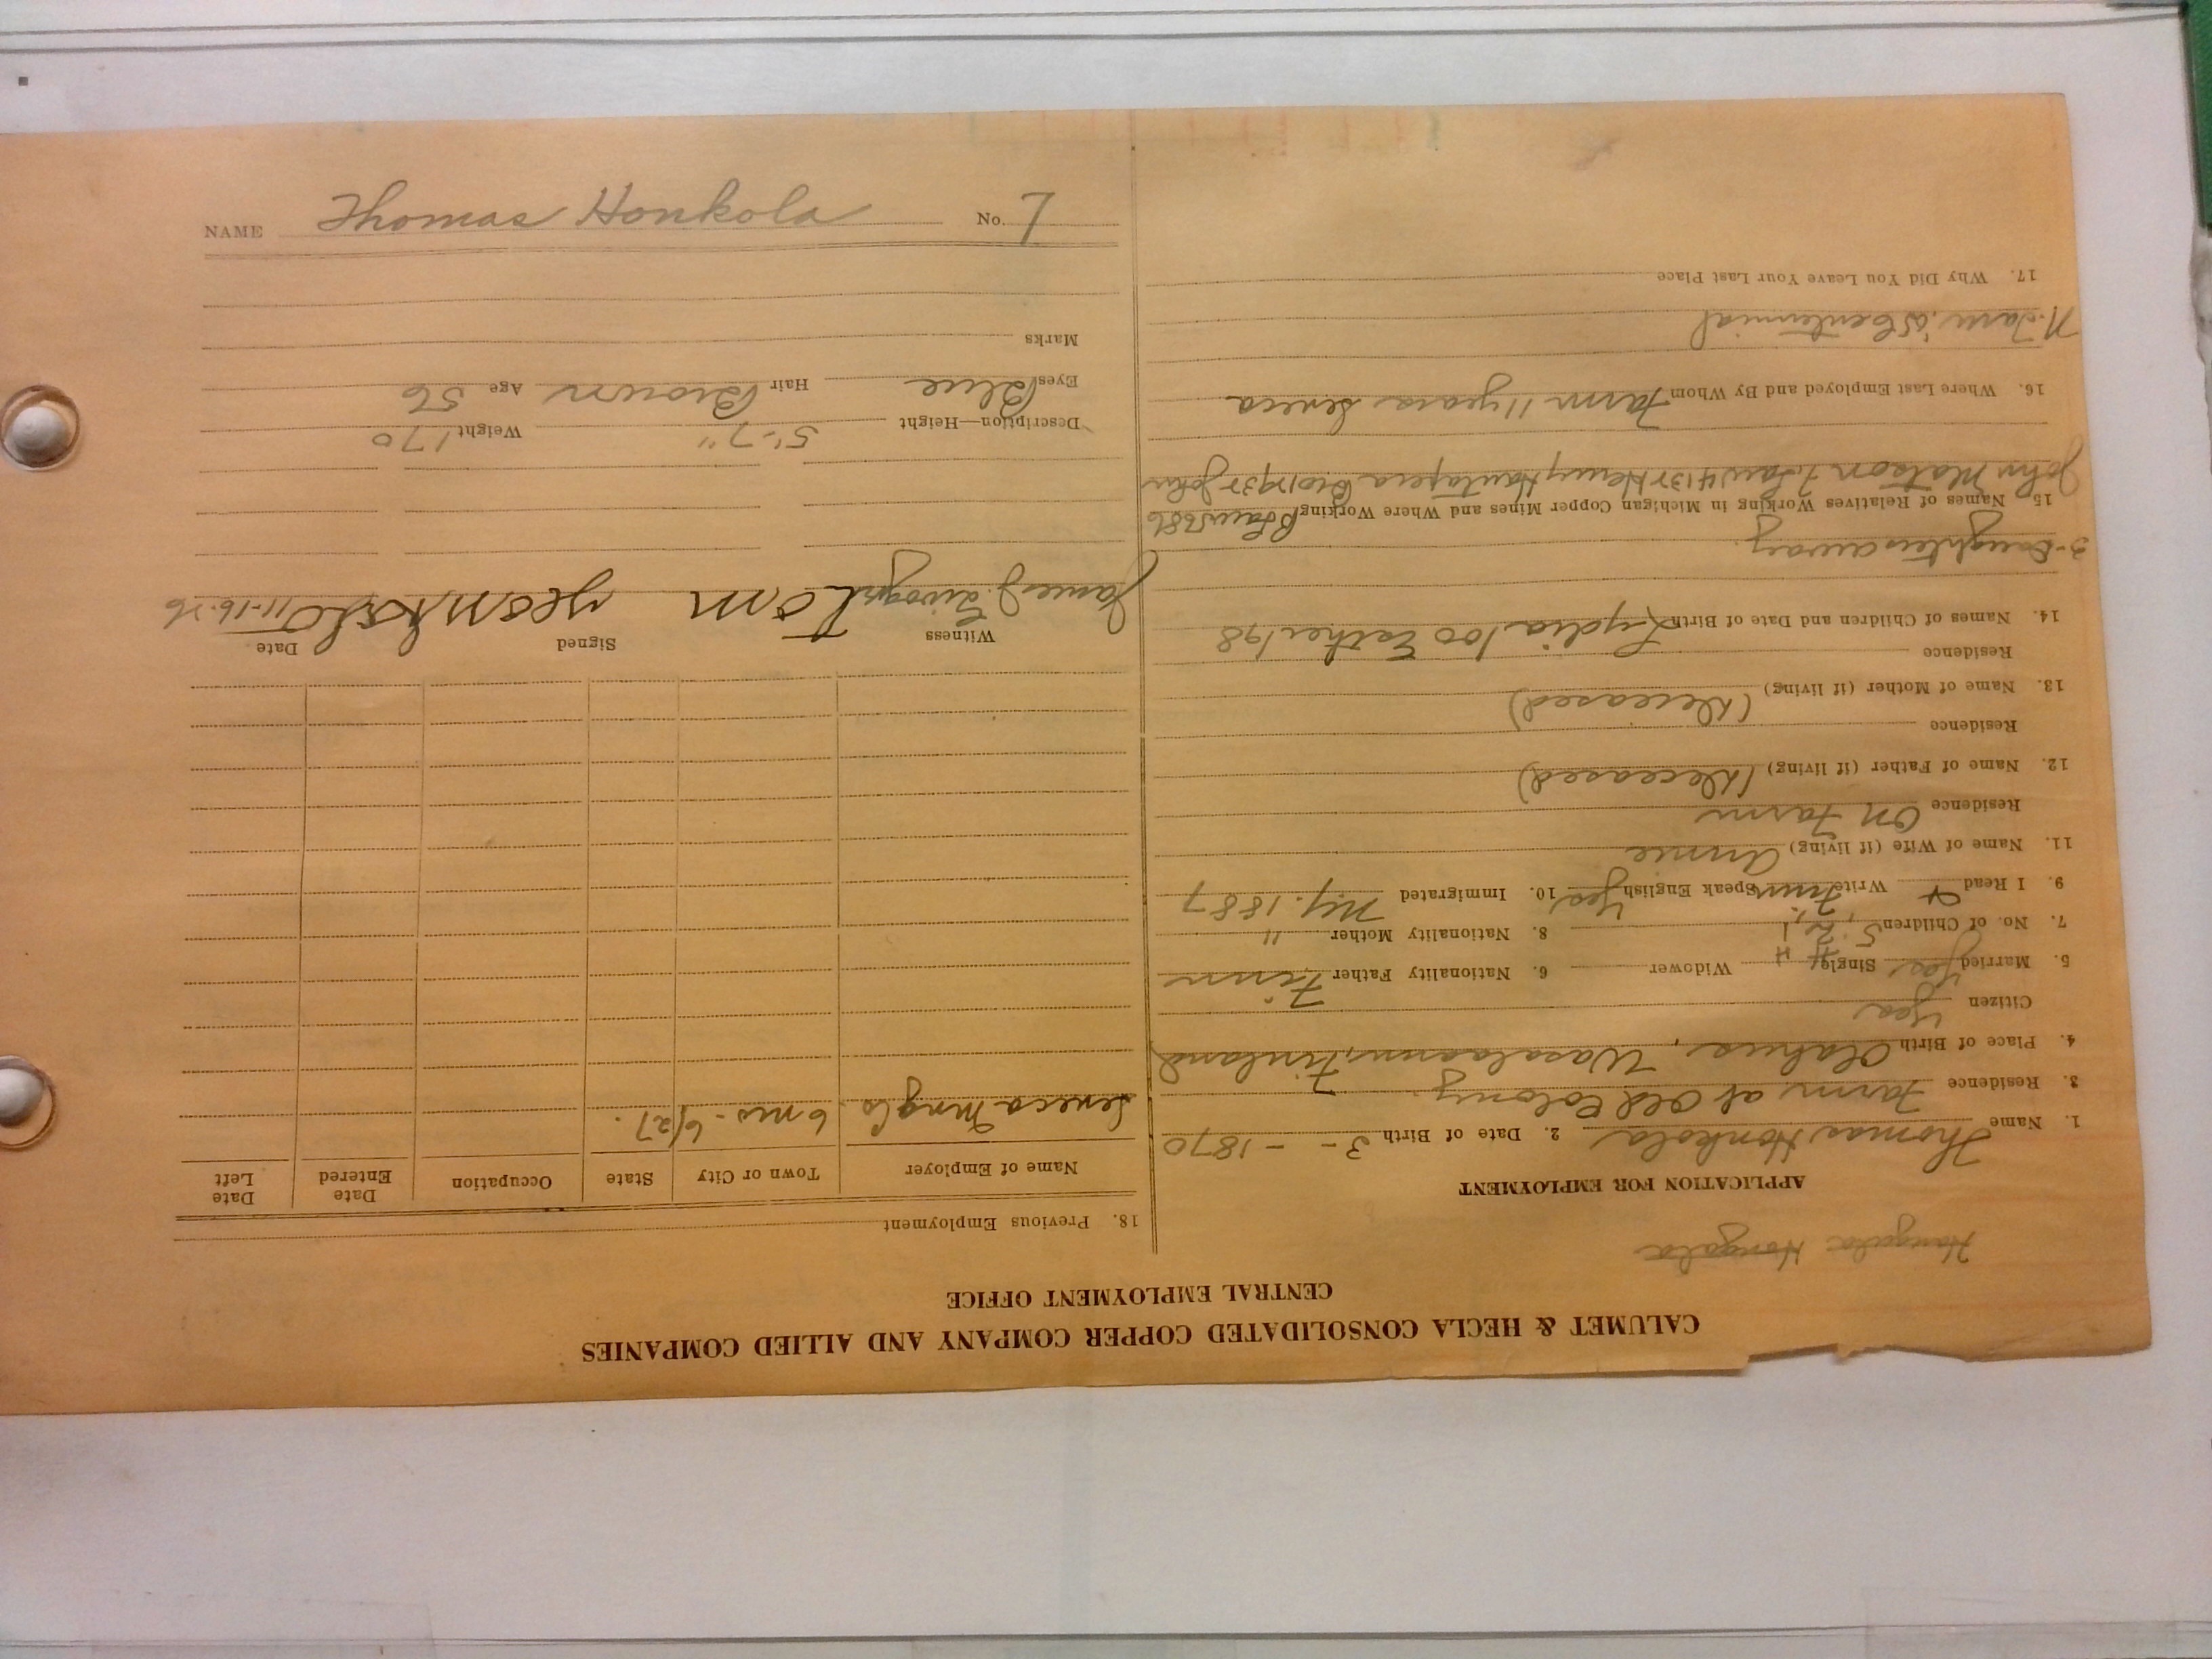 NAME Thomas Honkola No. 7
CALUMET & HECLA CONSOLIDATED COPPER COMPANY AND ALLIED COMPANIES
CENTRAL EMPLOYMENT OFFICE
Hongala
APPLICATION FOR EMPLOYMENT
1. Name Thomas Honkola 2. Date of Birth 3 - - 1870
3. Residence Farm at Old Colony.
4. Place of Birth Finland
Citizen Yes
5. Married Yes Single Widower 6. Nationality Father Finn
7. No. of Children 8. Nationality Mother "
9. I Read Write Finn Speak English Yes 10. Immigrated Ny. 1887
11. Name of Wife (if living) Annie
Residence On Farm
12. Name of Father (if living) (Deceased)
Residence
13. Name of Mother (if living) (Deceased)
Residence
14. Names of Children and Date of Birth Lydia 100 Esther 198
3-Daughters away.
15. Names of Relatives Working in Michigan Copper Mines and Where Working
John Matson Henry John
16. Where Last Employed and By Whom Farm 11 years Seneca
Centennial
17. Why Did You Leave Your Last Place
18. Previous Employment
Name of Employer Town or City State Occupation Date Entered Date Left
Seneca 6 mo - 6/27.
Witness Signed Date
James J. Tom 11-16-26
Description—Height 5'-7" Weight 170
Eyes Blue Hair Brown Age 56
Marks